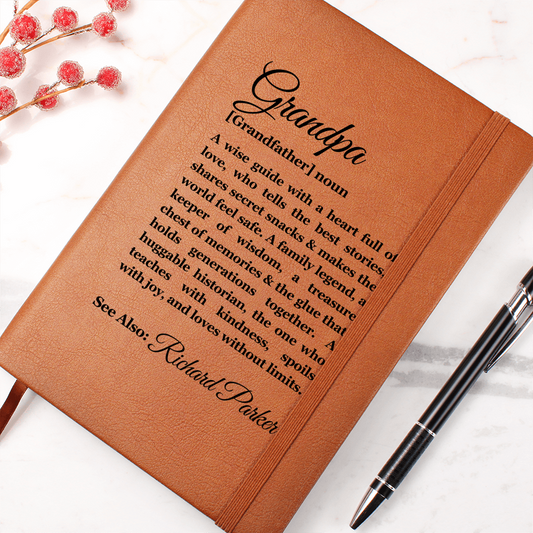 Grandpa
[Grandfather] noun
A wise guide with a heart full of
love, who tells the best stories,
shares secret snacks & makes the
world feel safe. A family legend, a
keeper of wisdom, a treasure
chest of memories & the glue that
holds generations together. A
huggable historian, the one who
teaches with kindness, spoils
with joy, and loves without limits.
See Also: Richard Parker